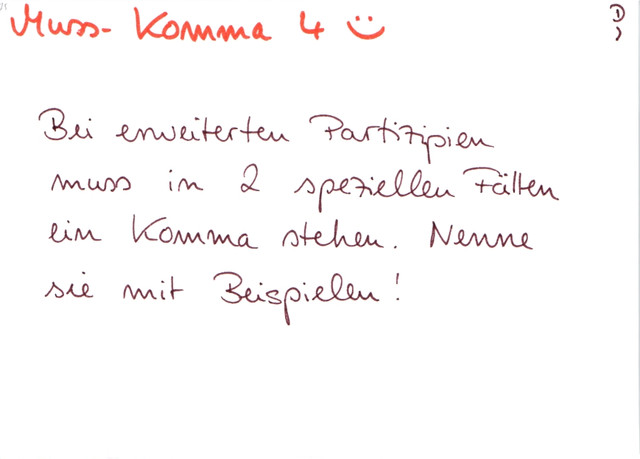 Muss-Komma 4 :)
D
Bei erweiterten Partizipien
muss in 2 speziellen Fällen
ein Komma stehen. Nenne
sie mit Beispielen!